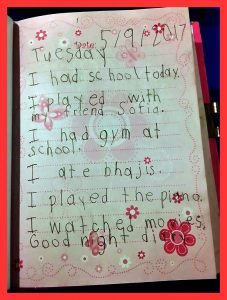 Date: 5/9/2017
Tuesday
I had school today.
I played with
my friend Sofia.
I had gym at
school.
I ate bhajis.
I played the piano.
I watched movies.
Good night